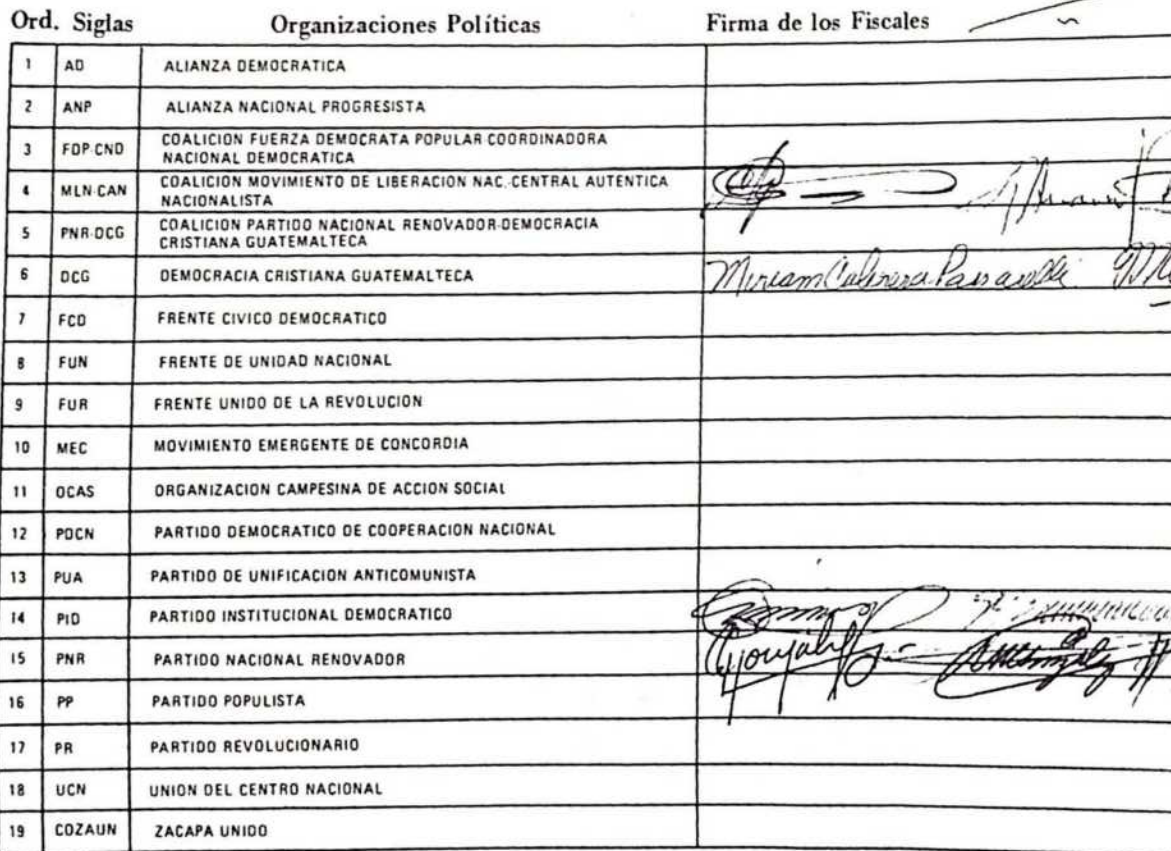 Ord. Siglas Organizaciones Políticas Firma de los Fiscales
1 AD ALIANZA DEMOCRATICA
2 ANP ALIANZA NACIONAL PROGRESISTA
3 FDP-CND COALICION FUERZA DEMOCRATA POPULAR-COORDINADORA
NACIONAL DEMOCRATICA
4 MLN-CAN COALICION MOVIMIENTO DE LIBERACION NAC.-CENTRAL AUTENTICA
NACIONALISTA
5 PNR-DCG COALICION PARTIDO NACIONAL RENOVADOR-DEMOCRACIA
CRISTIANA GUATEMALTECA
6 DCG DEMOCRACIA CRISTIANA GUATEMALTECA Miriam
7 FCD FRENTE CIVICO DEMOCRATICO
8 FUN FRENTE DE UNIDAD NACIONAL
9 FUR FRENTE UNIDO DE LA REVOLUCION
10 MEC MOVIMIENTO EMERGENTE DE CONCORDIA
11 OCAS ORGANIZACION CAMPESINA DE ACCION SOCIAL
12 PDCN PARTIDO DEMOCRATICO DE COOPERACION NACIONAL
13 PUA PARTIDO DE UNIFICACION ANTICOMUNISTA
14 PID PARTIDO INSTITUCIONAL DEMOCRATICO
15 PNR PARTIDO NACIONAL RENOVADOR
16 PP PARTIDO POPULISTA
17 PR PARTIDO REVOLUCIONARIO
18 UCN UNION DEL CENTRO NACIONAL
19 COZAUN ZACAPA UNIDO